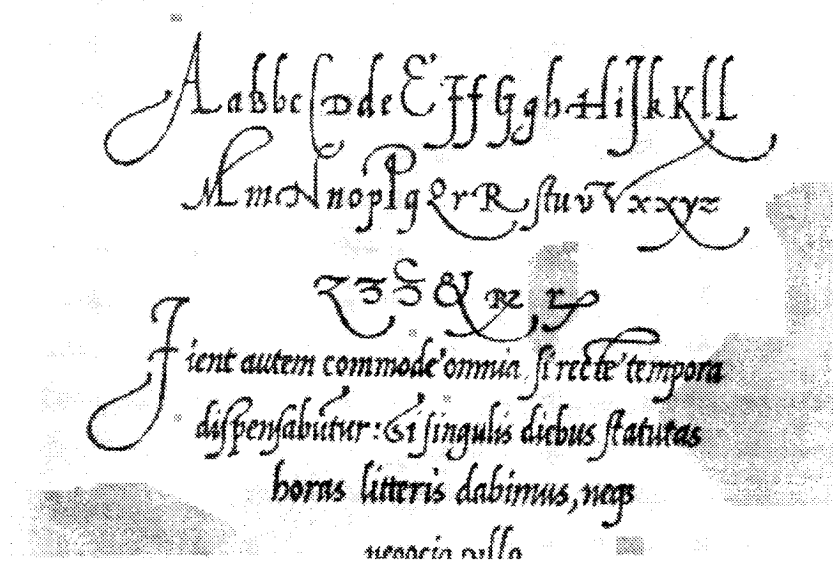 A a B b c C D d e E F f G g h H i J k K l L
M m N n o p P q Q r R ſt u v V x x y z
Z &
Fient autem commode omnia, ſi recte tempora
diſpenſabūtur: &i ſingulis diebus ſtatutas
horas litteris dabimus, neqꝫ
negocia nulla